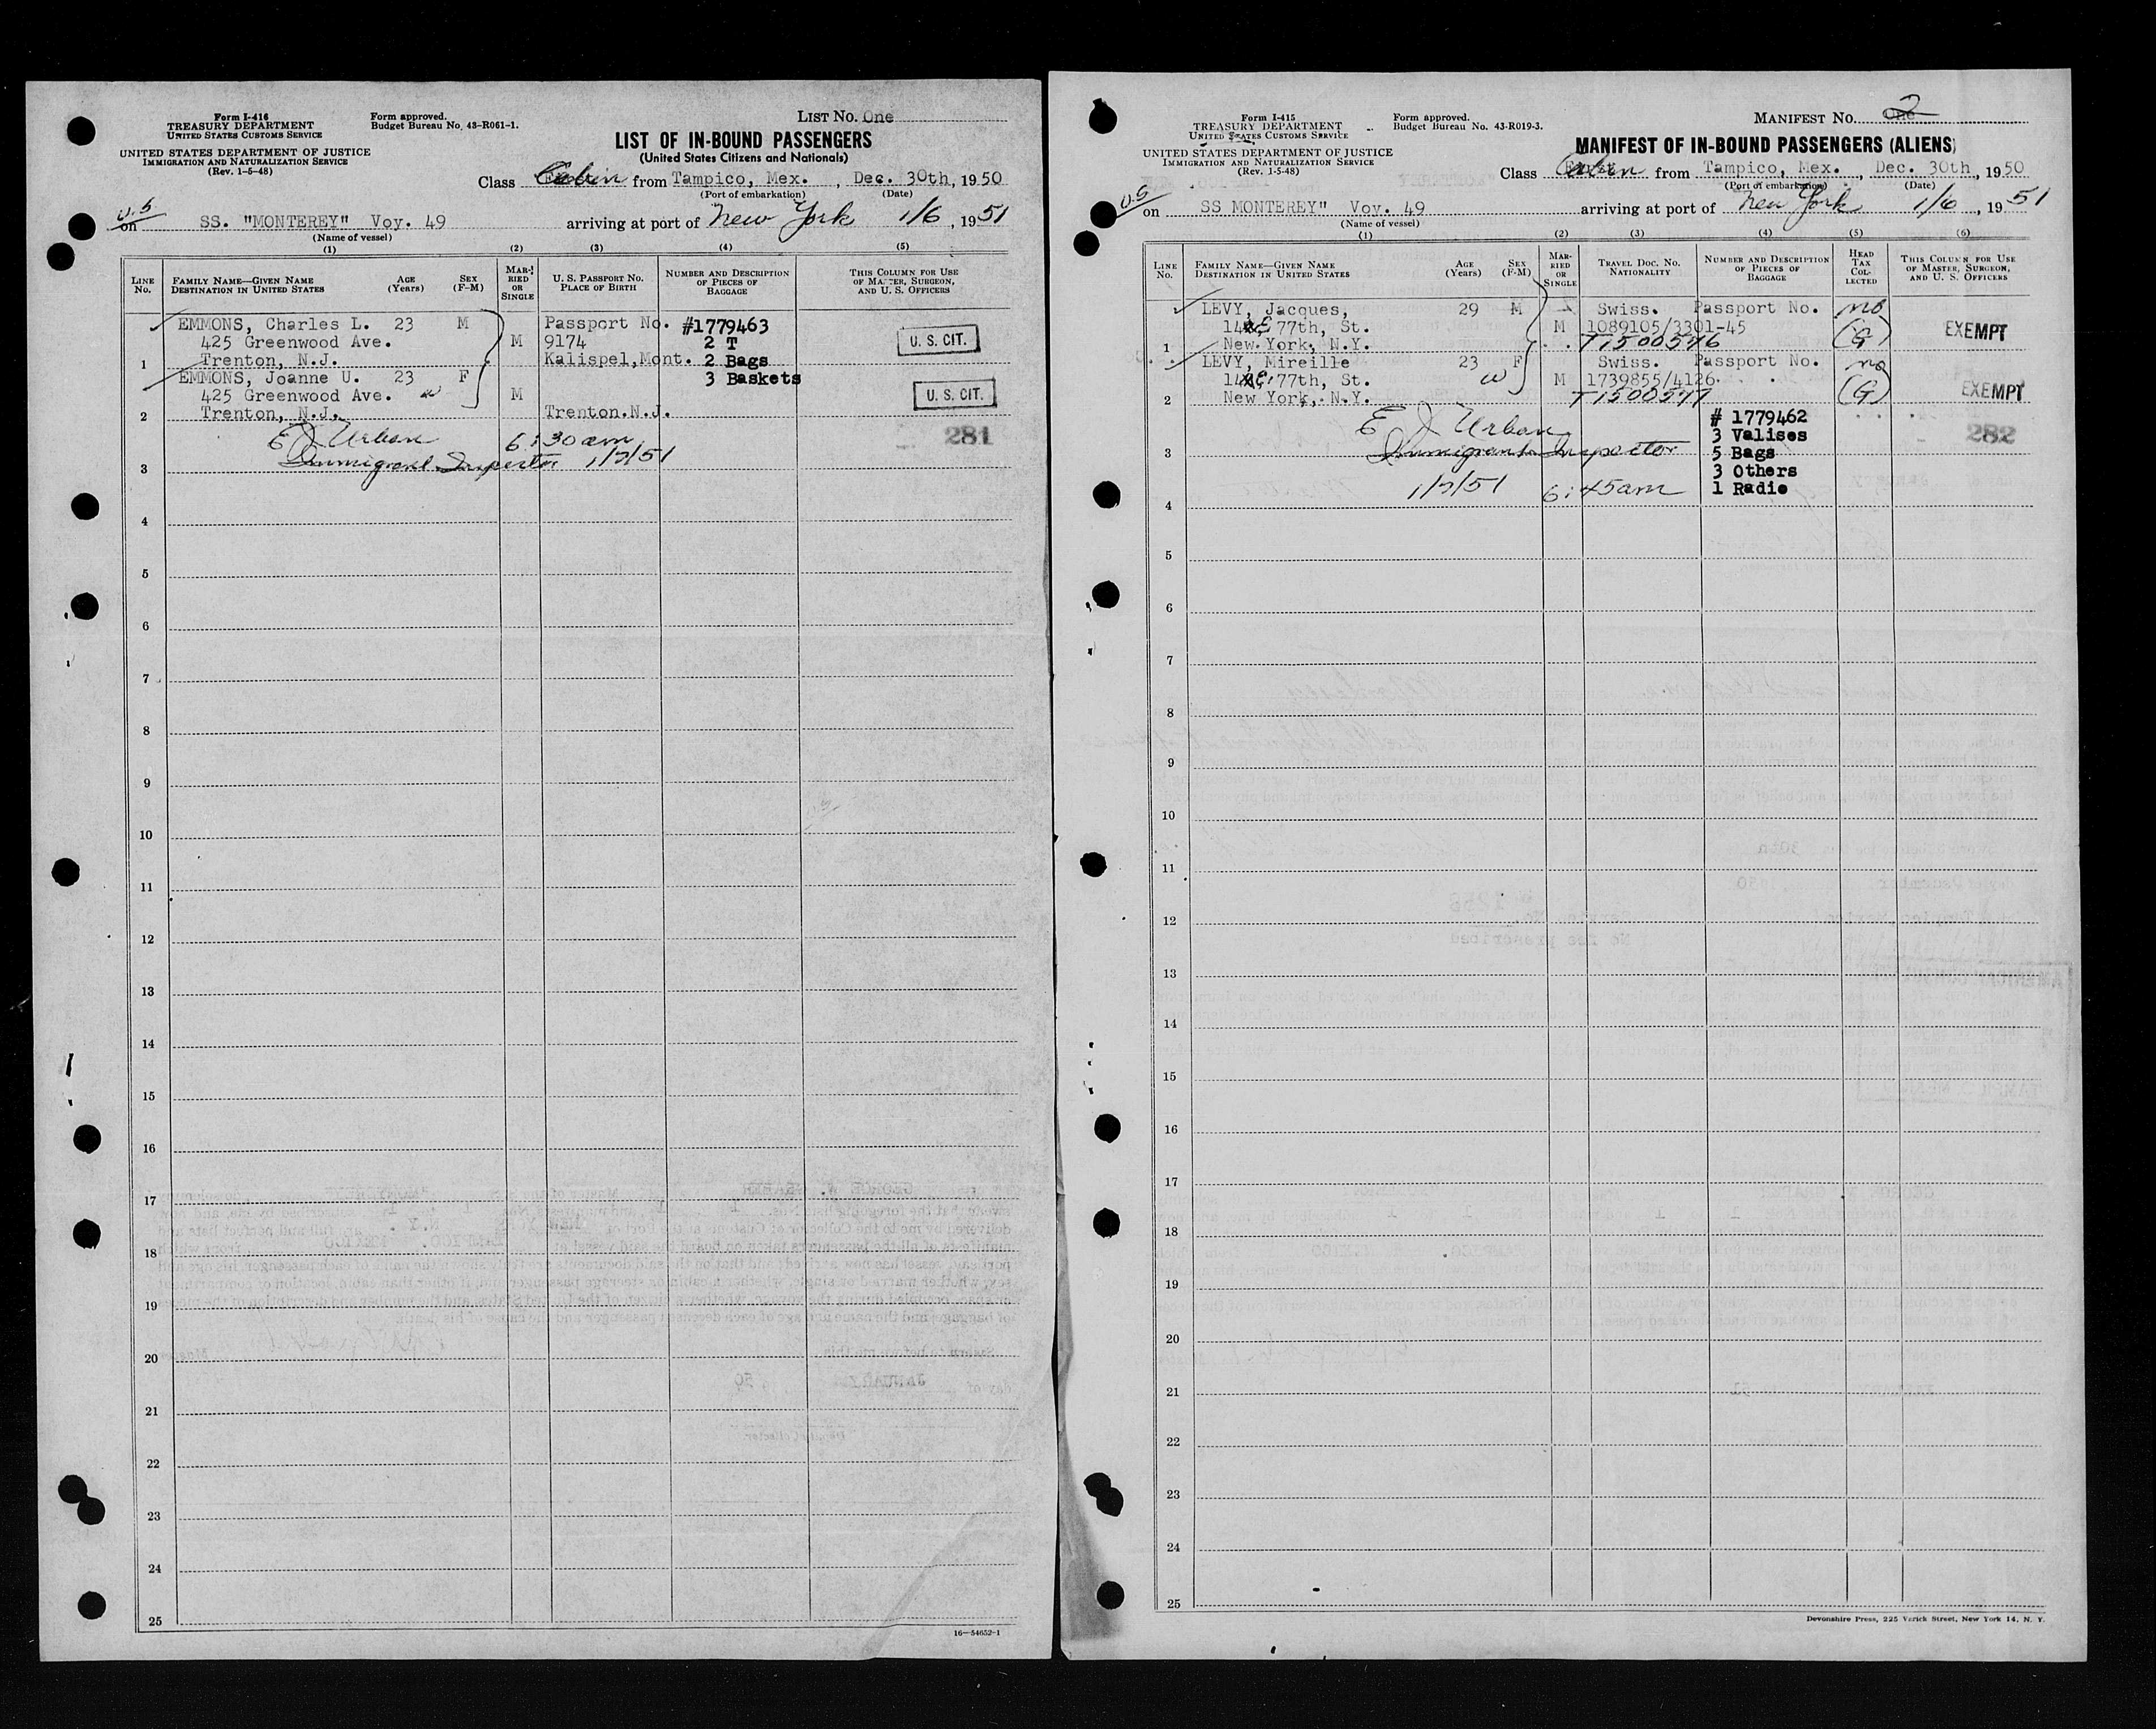 Form I-416
TREASURY DEPARTMENT
UNITED STATES CUSTOMS SERVICE
UNITED STATES DEPARTMENT OF JUSTICE
IMMIGRATION AND NATURALIZATION SERVICE
(Rev. 1-5-48)
Form approved.
Budget Bureau No. 43-R061-1.
LIST NO. One
LIST OF IN-BOUND PASSENGERS
(United States Citizens and Nationals)
Class Cabin from Tampico, Mex., Dec. 30th, 1950
(Port of embarkation) (Date)
U.S.
on SS. "MONTEREY" Voy. 49 arriving at port of New York 1/6, 1951
(Name of vessel)
(1) (2) (3) (4) (5)
LINE No. FAMILY NAME—GIVEN NAME DESTINATION IN UNITED STATES AGE (Years) SEX (F-M) MARRIED OR SINGLE U. S. PASSPORT NO. PLACE OF BIRTH NUMBER AND DESCRIPTION OF PIECES OF BAGGAGE THIS COLUMN FOR USE OF MASTER, SURGEON, AND U. S. OFFICERS
EMMONS, Charles L. 23 M Passport No. #1779463
425 Greenwood Ave. M 9174 2 T U. S. CIT.
1 Trenton, N.J. Kalispel,Mont. 2 Bags
EMMONS, Joanne U. 23 F 3 Baskets
425 Greenwood Ave. w M U. S. CIT.
2 Trenton, N.J. Trenton.N.J.
E J Urban 6:30am 281
3 Immigrant Inspector 1/7/51
4
5
6
7
8
9
10
11
12
13
14
15
16
17
18
19
20
21
22
23
24
25
16—54652-1
Form I-415
TREASURY DEPARTMENT
UNITED STATES CUSTOMS SERVICE
UNITED STATES DEPARTMENT OF JUSTICE
IMMIGRATION AND NATURALIZATION SERVICE
(Rev. 1-5-48)
Form approved.
Budget Bureau No. 43-R019-3.
MANIFEST NO. 2
MANIFEST OF IN-BOUND PASSENGERS (ALIENS)
Class Cabin from Tampico, Mex., Dec. 30th, 1950
(Port of embarkation) (Date)
U.S.
on SS MONTEREY" Voy. 49 arriving at port of New York 1/6, 1951
(Name of vessel)
(1) (2) (3) (4) (5) (6)
LINE No. FAMILY NAME—GIVEN NAME DESTINATION IN UNITED STATES AGE (Years) SEX (F-M) MARRIED OR SINGLE TRAVEL DOC. NO. NATIONALITY NUMBER AND DESCRIPTION OF PIECES OF BAGGAGE HEAD TAX COLLECTED THIS COLUMN FOR USE OF MASTER, SURGEON, AND U. S. OFFICERS
LEVY, Jacques, 29 M Swiss. Passport No. no
14 E 77th, St. M 1089105/3301-45 (G) EXEMPT
1 New York, N.Y. T1500576
LEVY, Mireille 23 F Swiss. Passport No. no
14 E 77th, St. w M 1739855/4126 (G) EXEMPT
2 New York, N.Y. T1500577
# 1779462
E J Urban 3 Valises 282
3 Immigrant Inspector 5 Bags
3 Others
1/7/51 6:45am 1 Radio
4
5
6
7
8
9
10
11
12
13
14
15
16
17
18
19
20
21
22
23
24
25
Devonshire Press, 225 Varick Street, New York 14, N. Y.